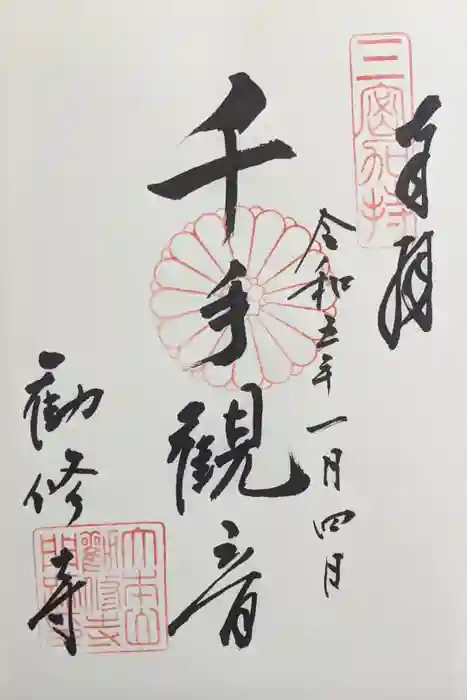 奉拝
三密加持
令和五年一月四日
千手観音
勧修寺
大本山
勧修寺